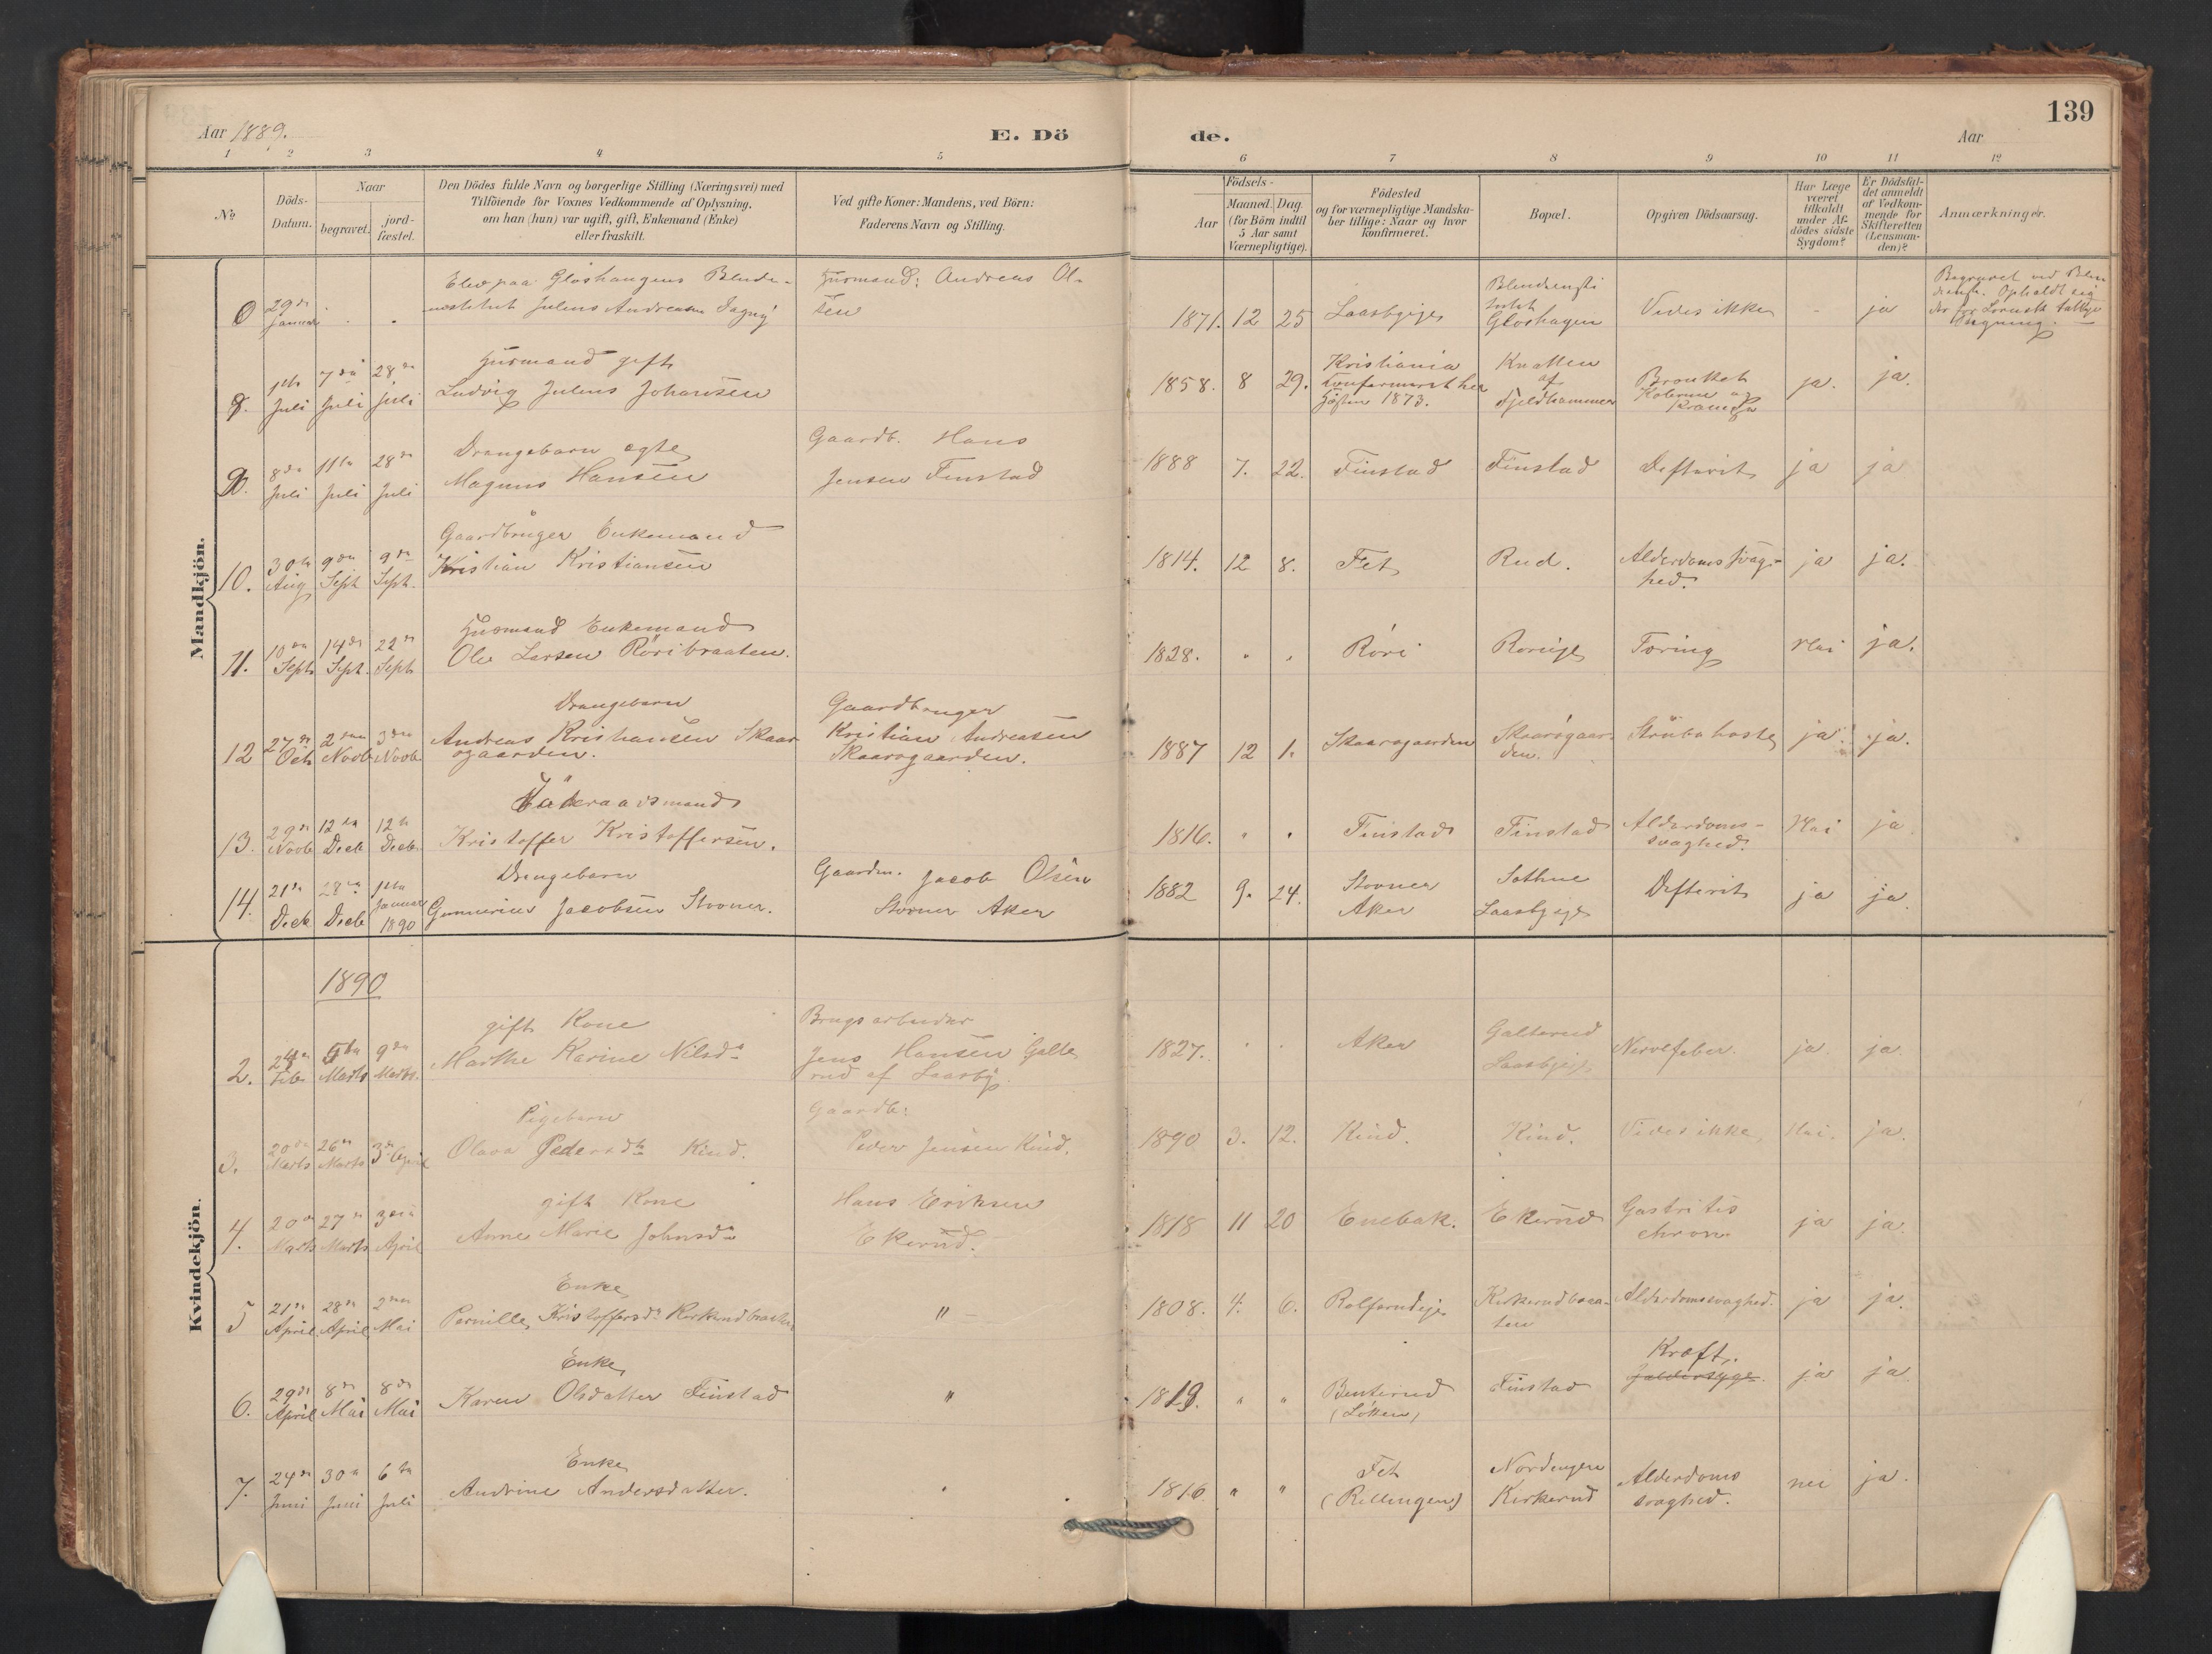 139
Aar 1889.
E. Dö
de.
Aar
1 2 3 4 5 6 7 8 9 10 11 12
№
Döds-
Datum.
Naar
begravet.
jord-
fæstet.
Den Dödes fulde Navn og borgerlige Stilling (Næringsvei) med
Tilföiende for Voxnes Vedkommende af Oplysning,
om han (hun) var ugift, gift, Enkemand (Enke)
eller fraskilt.
Ved gifte Koner: Mandens, ved Börn:
Faderens Navn og Stilling.
Födsels-
Aar
Maaned. Dag.
(for Börn indtil
5 Aar samt
Værnepligtige).
Födested
og for værnepligtige Mandska-
ber tillige: Naar og hvor
konfirmeret.
Bopæl.
Opgiven Dödsaarsag.
Har Læge
været
tilkaldt
under Af-
dödes sidste
Sygdom?
Er Dödsfal-
det anmeldt
af Vedkom-
mende for
Skifteretten
(Lensman-
den)?
Anmærkninger.
Mandkjön.
0 29de Januar
Elev paa Gloshaugens Blinde-
Julius Andreas
Husmand: Andreas Ol-
sen
1871. 12 25 Laasbyeje
Gloshagen
Vides ikke - ja
8. 1ste Juli 7de Juli 28de Juli
Husmand gift
Ludvig Julius Johansen
1858. 8 29.
Kristiania
Konfirmeret her
Hösten 1873.
Knatten
af
Fjeldhammer
ja. ja.
9. 8de Juli 11te Juli 28de Juli
Drengebarn ægte
Magnus Hansen
Gaardb. Hans
Jensen Finstad
1888 7. 22. Finstad Finstad Difterit ja ja
10. 30te Aug 9de Sept 9de Sept.
Gaardbruger Enkemand
Kristian Kristiansen
1814. 12 8. Fet Rud. Alderdomssvag-
hed. ja ja.
11. 10de Sept 14de Sept. 22de Sept
Husmand Enkemand
Ole Larsen Röribraaten.
1828. " " Röri Rörieje Tæring Nei ja.
12 27de Oct 2den Novb 3die Novb
Drengebarn
Andreas Kristiansen Skaar
sgaarden.
Gaardbruger
Kristian Andreasen
Skaarsgaarden.
1887 12 1. Skaarsgaarden Skaarsgaar-
den. Strübehoste ja. ja.
13. 29de Novb 12te Decb 12te Decb.
Föderaadsmand
Kristoffer Kristoffersen.
1816. " " Finstad Finstad Alderdoms-
svaghed. Nei ja
14. 21de Decb 28de Decb 1ste Januar 1890
Drengebarn
Gunnerius Jacobsen Stovner.
Gaardm. Jacob Olsen
Stovner Aker
1882 9. 24. Stovner
Aker
Laasbyeje Difterit ja ja.
Kvindekjön.
1890
2. 24de Feb. 5te Marts 9de Marts.
gift Kone
Marthe Karine Nilsdr
Brugsarbeider
Jens Hansen Galte
rud af Laasby.
1827. " " Aker Galterud
Laasbyeje Nervefeber. ja. ja.
3. 20de Marts 26de Marts 3die April
Pigebarn
Olava Pedersdtr Kind.
Gaardb:
Peder Jensen Kind.
1890 3. 12. Kind. Kind. Vides ikke, Nei. ja.
4. 20de Marts 27de Marts 3die April
gift Kone
Anne Marie Johnsdr
Hans Eriksen
Ekerud.
1818 11 20 Enebak. Ekerud Gastritis
chron. ja ja.
5 21de April 28de April 2den Mai
Enke
Pernille Kristoffersdr Kirkerudbraaten
" -
1808. 4. 6. Rolfsrudeje Kirkerudbraa-
ten Alderdomssvaghed. ja ja.
6. 29de April 8de Mai 8de Mai
Enke
Karen Olsdatter Finstad
"
1819. " " Benterud
(Löken) Finstad Kræft. ja ja.
7. 24de Juni 30te Juni 6te Juli
Enke
Andrine Andersdatter.
1816 " " Fet
(Rellingen)
Kirkerud Alderdoms
svaghed. nei ja.